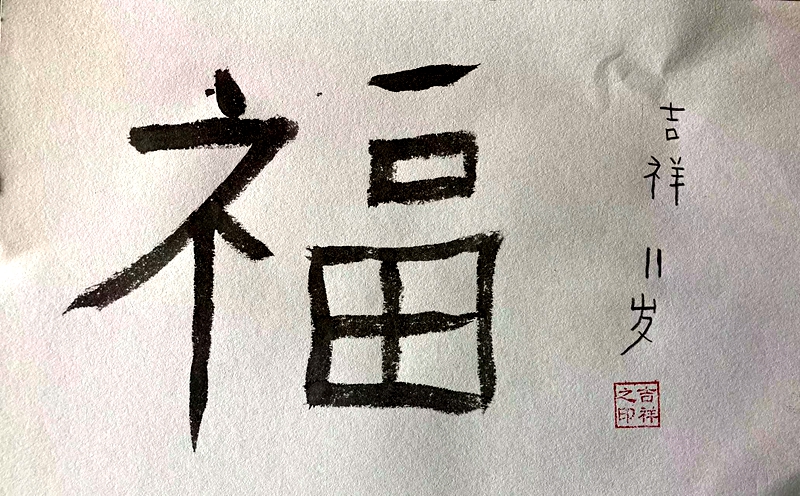 福
吉祥
11岁
吉祥之印